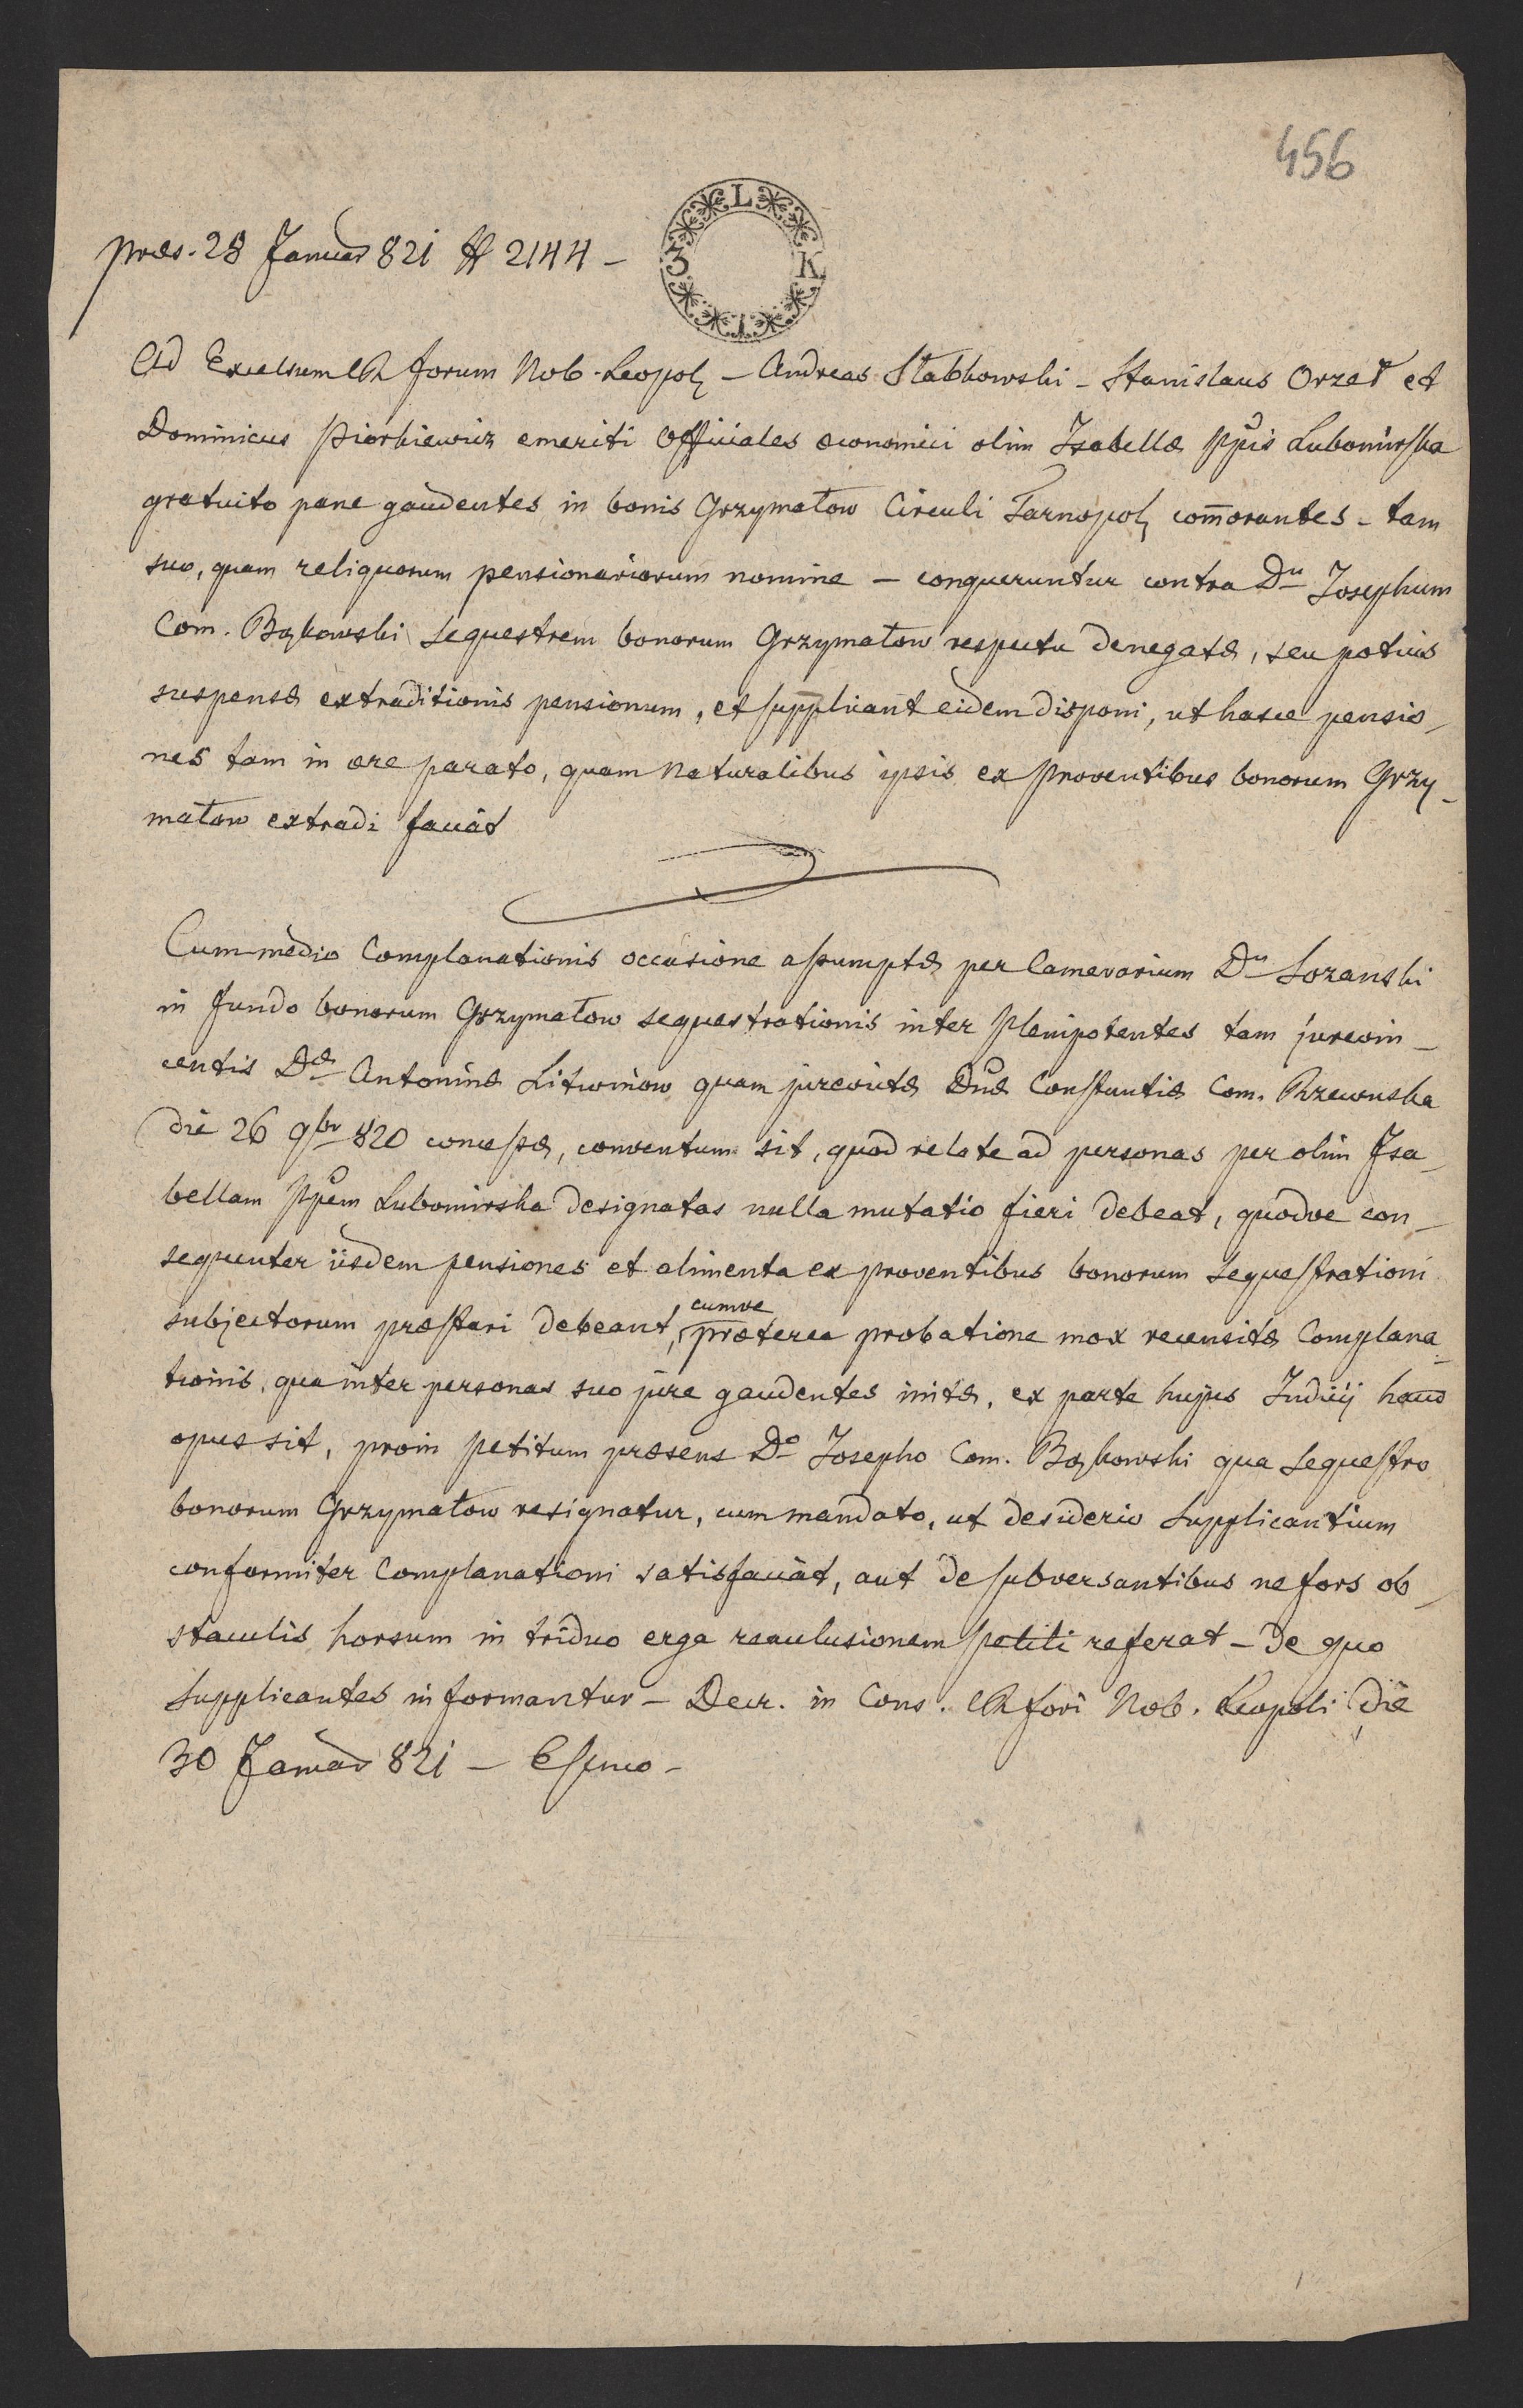 456
praes. 28 Januar 821 N 2144 –
L
3 K
I
Ad Excelsum CR forum Nob. Leopol – Andreas Słabkowski – Stanislaus Orzeł et
Dominicus Piorkiewicz emeriti Officiales œconomici olim Isabellæ Ppis Lubomirska
gratuito pane gaudentes in bonis Grzymałow Circuli Tarnopol com̄orantes – tam
suo, quam reliquorum pensionariorum nomine – conqueruntur contra Dn Josephum
Com. Bąkowski sequestrem bonorum Grzymałow respectu denegatæ, seu potius
suspensæ extraditionis pensionum, et supplicant eidem disponi, ut hasce pensio-
nes tam in ære parato, quam naturalibus ipsis ex proventibus bonorum Grzy-
małow extradi faciat
Cum medio Complanationis occasione assumptæ per Camerarium Dn Łozanski
in fundo bonorum Grzymałow sequestrationis inter Plenipotentes tam jurevin-
centis Dæ Antoninæ Litwinow quam jurevictæ Dnæ Constantiæ Com. Rzewuska
die 26 9br 820 concessæ, conventum sit, quod relate ad personas per olim Isa-
bellam Ppem Lubomirska designatas nulla mutatio fieri debeat, quodve con-
sequenter iisdem pensiones et alimenta ex proventibus bonorum sequestrationi
subjectorum præstari debeant, cumve præterea probatione mox recensitæ Complana-
tionis, qua inter personas suo jure gaudentes initæ, ex parte hujus Judicij haud
opus sit, proin petitum præsens Do Josepho Com. Bąkowski qua sequestro
bonorum Grzymałow resignatur, cum mandato, ut desiderio supplicantium
conformiter Complanationi satisfaciat, aut de subversantibus ne fors ob-
staculis horsum in triduo erga reaclusionem petiti referat – de quo
supplicantes informantur – Decr. in Cons. CR fori Nob. Leopoli die
30 Januar 821 –